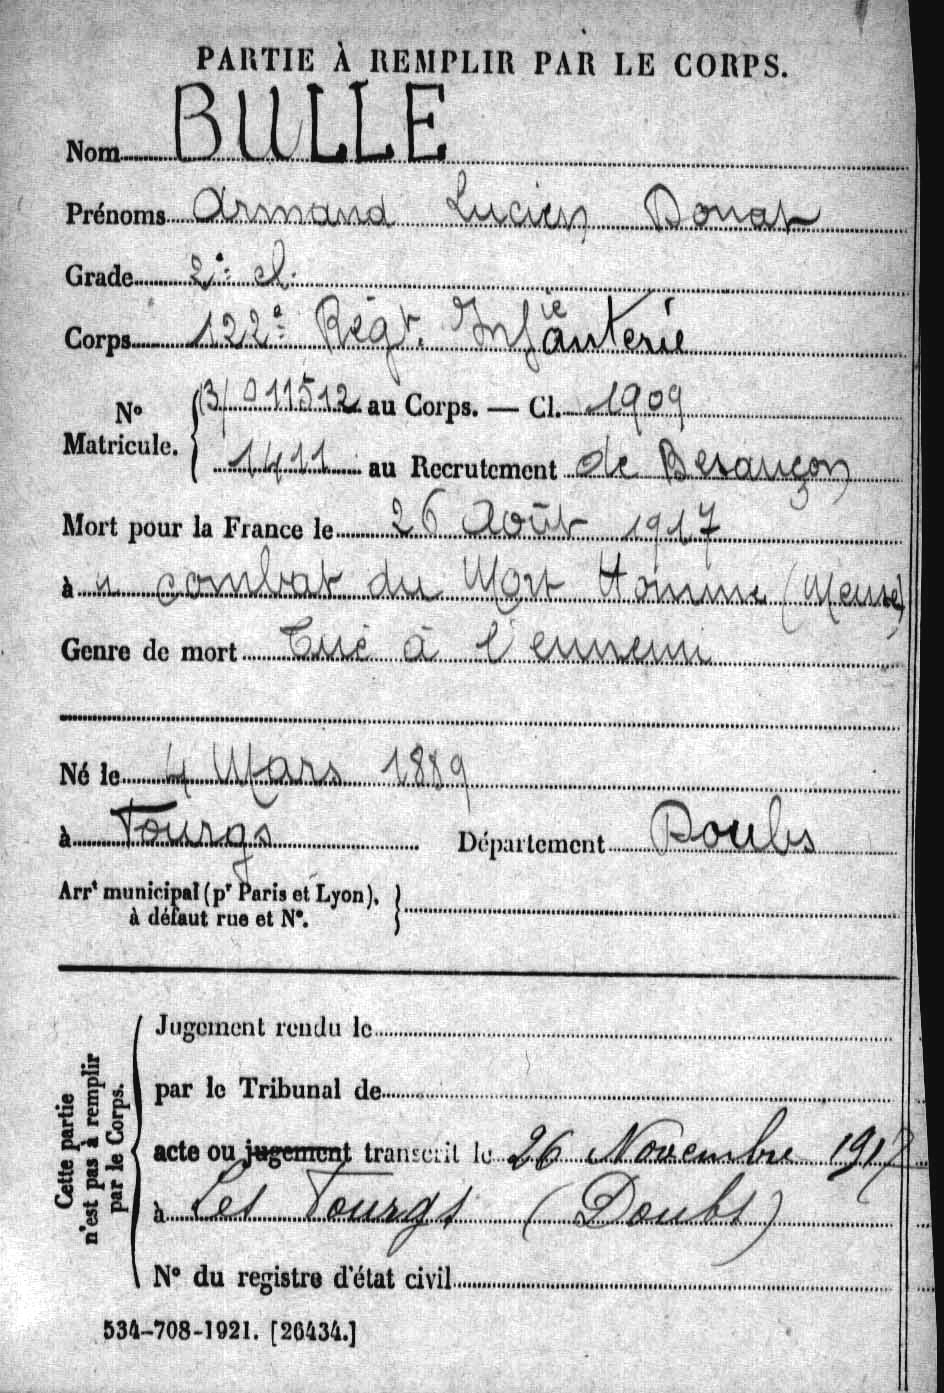 PARTIE À REMPLIR PAR LE CORPS.
Nom BULLE
Prénoms Armand Lucien Donat
Grade 2e cl.
Corps 122e Régt. Infanterie
No Matricule. { (3) 011512 au Corps. — Cl. 1909
1411 au Recrutement de Besançon
Mort pour la France le 26 Août 1917
à combat du Mort Homme (Meuse)
Genre de mort Tué à l'ennemi
Né le 4 Mars 1889
à Fourgs Département Doubs
Arrt municipal (pr Paris et Lyon),
à défaut rue et No.
Cette partie
n'est pas à remplir
par le Corps.
Jugement rendu le
par le Tribunal de
acte ou jugement transcrit le 26 Novembre 1917
à Les Fourgs (Doubs)
No du registre d'état civil
534-708-1921. [26434.]